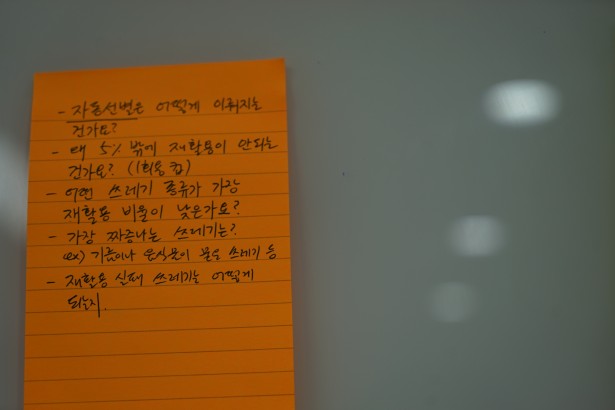 - 자동선별은 어떻게 이뤄지는
건가요?
- 왜 5% 밖에 재활용이 안되는
건가요? (1회용 컵)
- 어떤 쓰레기 종류가 가장
재활용 비율이 낮은가요?
- 가장 짜증나는 쓰레기는?
ex) 기름이나 음식물이 묻은 쓰레기 등
- 재활용 실패 쓰레기는 어떻게
되는지.